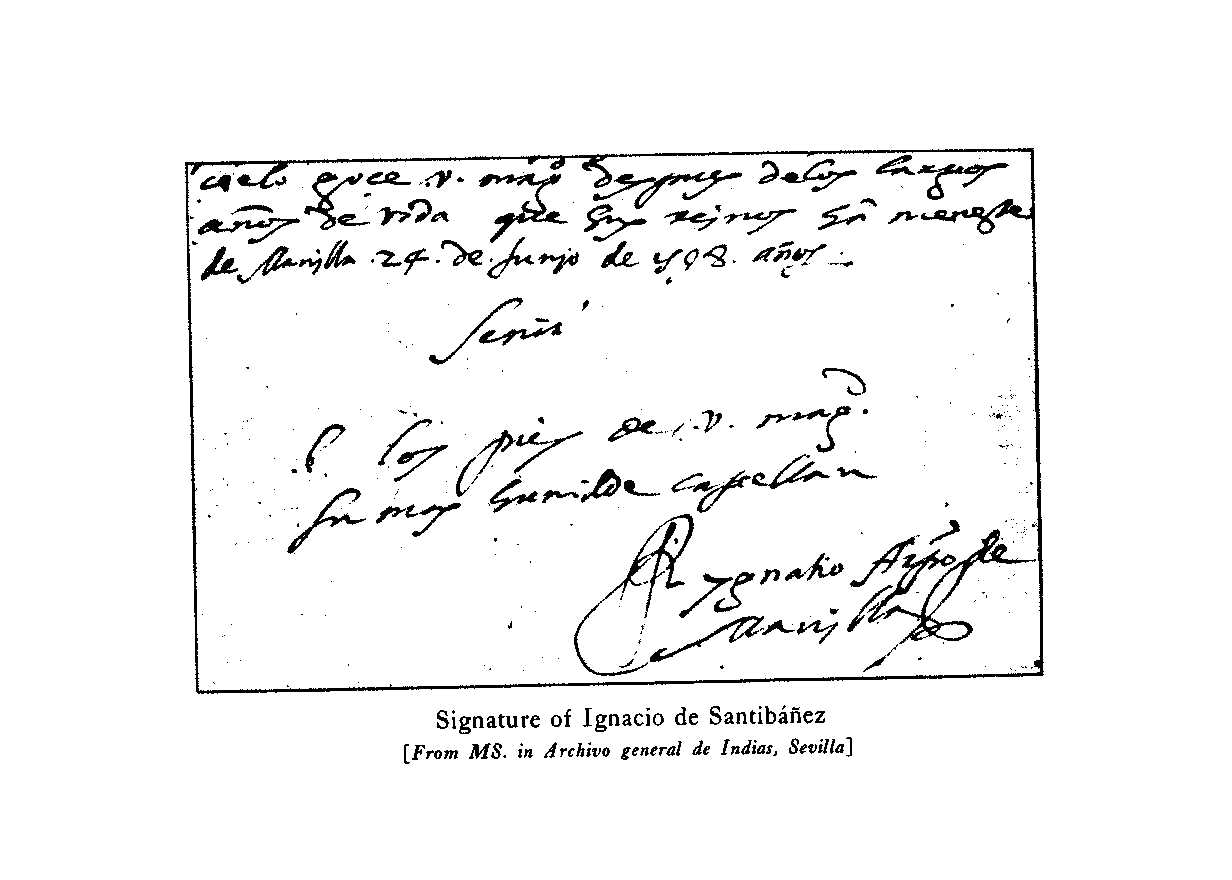 cielo goce .v. magd despues delos largos
años de vida que sus reinos han menester
de Manilla .24. de Junjo de 1598. años
Señor
B los pies de .v. magd.
Su mas humilde capellan
Ygnatio Arçpo de
Manilla
Signature of Ignacio de Santibáñez
[From MS. in Archivo general de Indias, Sevilla]